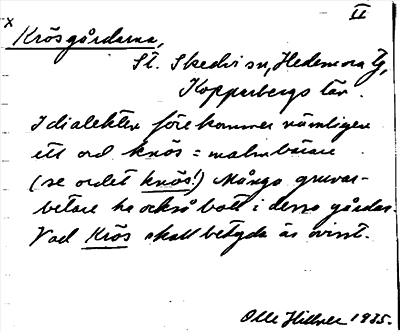 x
II
Krösgårdarna,
St. Skedvi sn, Hedemora tg,
Kopparbergs län.
I dialekten förekommer nämligen
ett ord knös = malmbärare
(se ordet knös!) Många gruvar-
betare ha också bott i dessa gårdar.
Vad Krös skall betyda är ovisst.
Olle Hillner 1935.